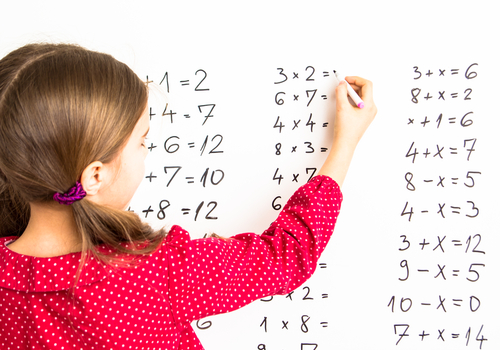 + 1 = 2
+ 4 = 7
+ 6 = 12
+ 7 = 10
+ 8 = 12
6
3 × 2 =
6 × 7 =
4 × 4 =
8 × 3 =
4 × 7 =
6
=
× 2 =
1 × 8 =
3 + x = 6
8 + x = 2
x + 1 = 6
4 + x = 7
8 - x = 5
4 - x = 3
3 + x = 12
9 - x = 5
10 - x = 0
7 + x = 14